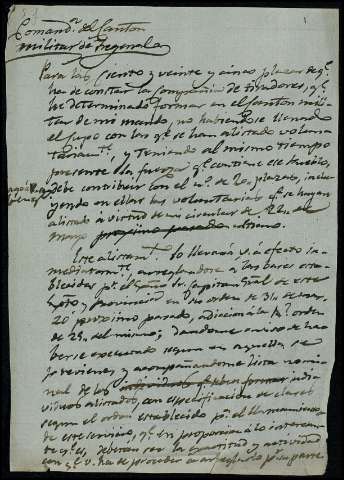 Comand.ª del Canton
militar de Fregenal
Para las ciento y veinte y cinco plazas q.e
ha de constar la Compañia de tiradores, q.e
he determinado formar en el Canton mili-
tar de mi mando, no habiendose llenado
el cupo con los q.e se han alistado volunta-
riam.te, y teniendo al mismo tiempo
presente la fuerza q.e contiene ese
debe contribuir con el n.º de 20 plazas, inclu-
yendo en ellas los voluntarios q.e se hayan
alistado á virtud de mi circular de 22 de
mayo proximo pasado ultimo.
Este alistam.to lo llevará V. á efecto in-
mediatam.te arreglandose á las bases esta-
blecidas p.r el Sr. Capitan Gral de este
Egto y provincia en su orden de 31 de
20 proximo pasado, adicional á la R.l orden
de 25 del mismo; dandome aviso de ha-
berse executado segun en aquella se
previene, y acompañandome lista nomi-
nal de los indi-
viduos alistados, con especificacion de clases
segun el orden establecido p.r el llamamiento
de este servicio, q.e en proporcion á lo interesan-
te q.e es, deberan ser la exactitud y actividad
con q.e V. ha de proceder en arreglarlo p.r su parte